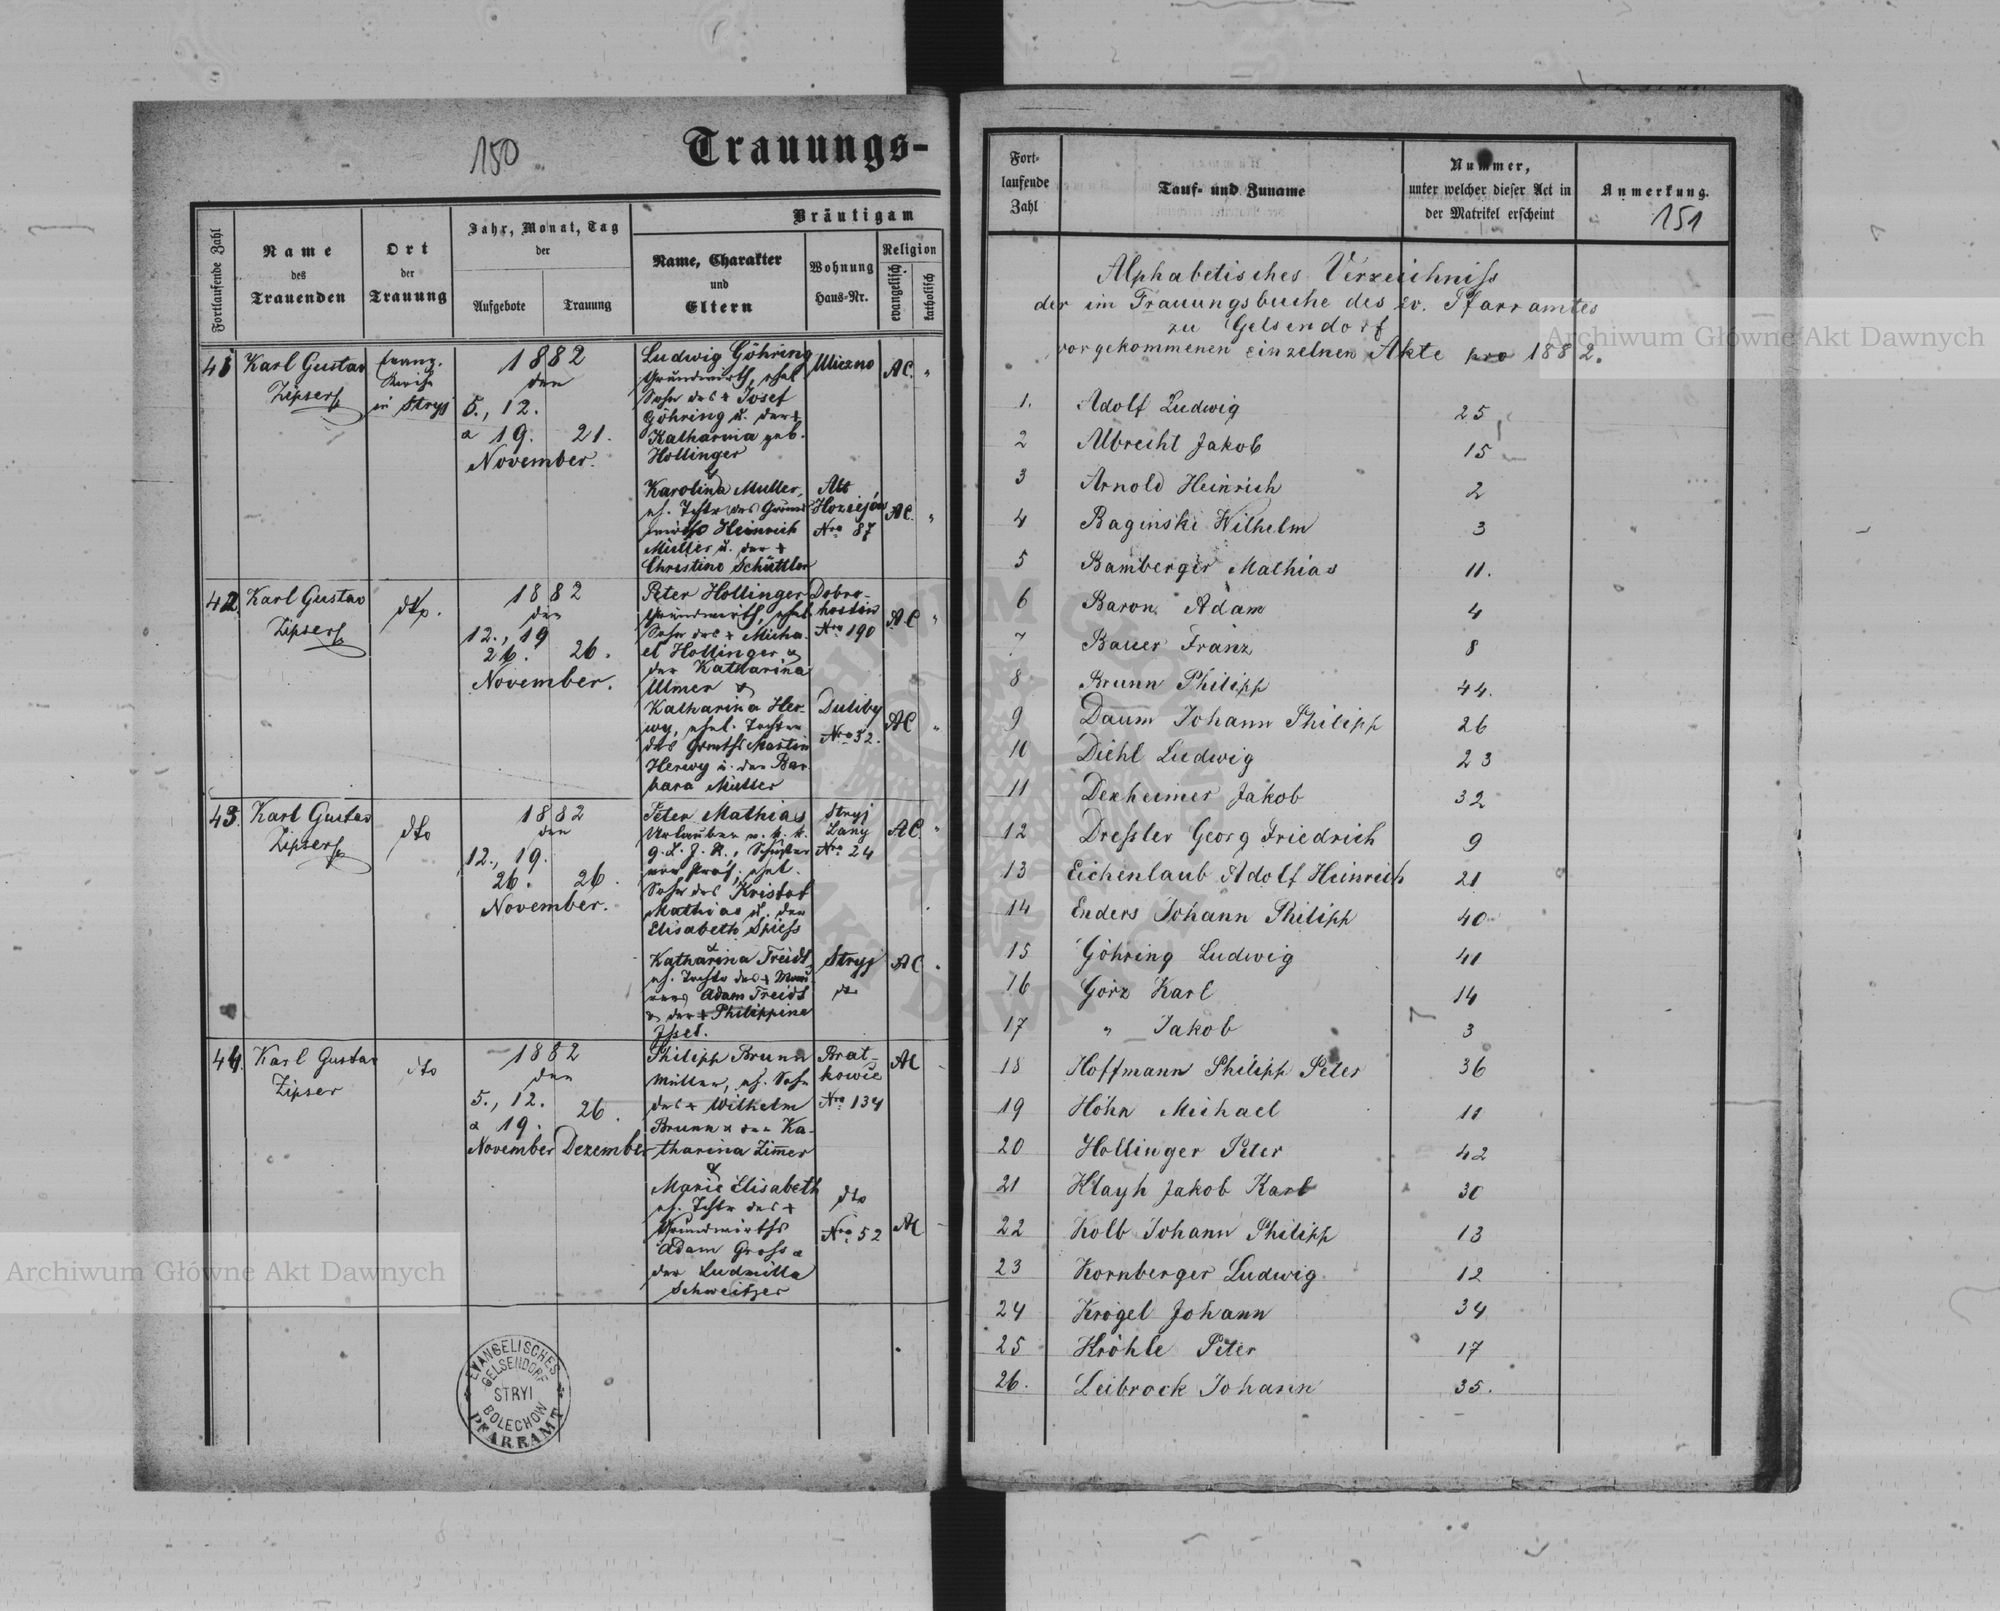 150
Trauungs-
Fortlaufende Zahl
Name
des
Trauenden
Ort
der
Trauung
Jahr, Monat, Tag
der
Aufgebote
Trauung
Bräutigam
Name, Charakter
und
Eltern
Wohnung
Haus-Nr.
Religion
evangelisch
katholisch
41
Karl Gustav
Zipser
evang.
Kirche
in Stryj
1882
den
5., 12.
& 19. 21.
November.
Ludwig Göhring
Grundwirth, ehel
Sohn des + Josef
Göhring u. der +
Katharina geb.
Hollinger
&
Uliczno
AC. "
Karolina Muller,
eh. Tchtr des Grund
wirths Heinrich
Müller u. der +
Christine Schüttler
Alt
Nro 87
AC. "
42
Karl Gustav
Zipser
dto.
1882
den
12., 19
26. 26.
November.
Peter Hollinger
Grundwirth, ehel
Sohn des + Micha-
el Hollinger &
der Katharina
Ulmer &
Dobro-
hostów
Nro 190
AC "
Katharina Her-
wy, ehel. Tochter
des Grwths Martin
Herwy u. der Bar-
bara Müller
Duliby
Nro 32.
AC "
43
Karl Gustav
Zipser
dto
1882
den
12., 19.
26. 26.
November.
Peter Mathias
Urlauber v. k. k.
Sohn des Kristof
Mathias u. der
Elisabeth Spiess
&
Stryj
Lany
Nro 24
AC "
Katharina Treidt
eh. Tochtr des + Mau
rers Adam Treidt
& der + Philippine
Stryj
dto
AC "
44.
Karl Gustav
Zipser
dto
1882
den
5., 12.
& 19. 26.
November Dezember
Philipp Brunn
Müller, eh. Sohn
des + Wilhelm
Brunn & der Ka-
tharina Zimer
&
Brat-
kowce
Nro 134
AC
Marie Elisabeth
eh. Tchtr des +
Grundwirths
Adam Gross &
der Ludmilla
Schweitzer
dto
Nro 52
AC
EVANGELISCHES
GELSENDORF
STRYI
BOLECHOW
PFARRAMT
Fort-
laufende
Zahl
Tauf- und Zuname
Nummer,
unter welcher dieser Act in
der Matrikel erscheint
Anmerkung.
151
Alphabetisches Verzeichniss
der im Trauungsbuche des ev. Pfarramtes
zu Gelsendorf
vorgekommenen einzelnen Akte pro 1882.
1. Adolf Ludwig 25
2 Albrecht Jakob 15
3 Arnold Heinrich 2
4 Baginski Wilhelm 3
5 Bamberger Mathias 11.
6 Baron Adam 4
7 Bauer Franz 8
8 Brunn Philipp 44.
9 Daum Johann Philipp 26
10 Diehl Ludwig 23
11 Dexheimer Jakob 32
12 Dressler Georg Friedrich 9
13 Eichenlaub Adolf Heinrich 21
14 Enders Johann Philipp 40
15 Göhring Ludwig 41
16 Görz Karl 14
17 " Jakob 3
18 Hoffmann Philipp Peter 36
19 Höhn Michael 11
20 Hollinger Peter 42
21 Klayh Jakob Karl 30
22 Kolb Johann Philipp 13
23 Kornberger Ludwig 12
24 Krögel Johann 34
25 Kröhle Peter 17
26. Leibrock Johann 35.
Archiwum Główne Akt Dawnych
Archiwum Główne Akt Dawnych
ARCHIWUM GŁÓWNE AKT DAWNYCH